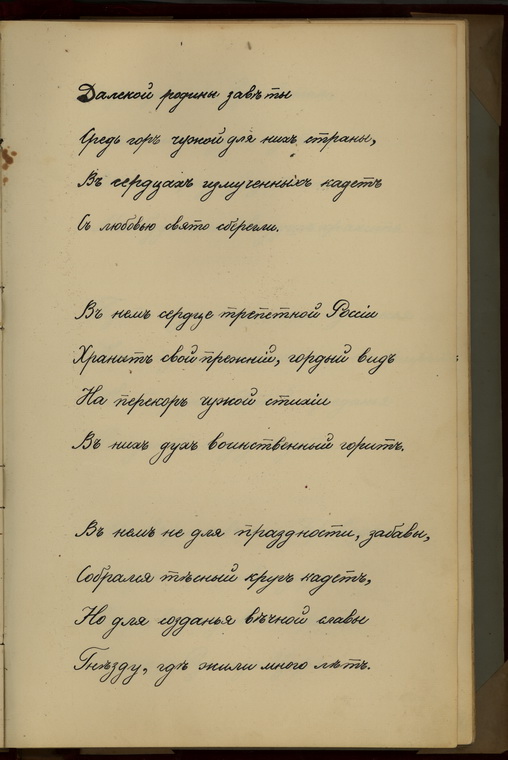 Далекой родины завѣты
Средь горъ чужой для нихъ страны,
Въ сердцахъ измученныхъ кадетъ
Съ любовью свято сберегли.
Въ немъ сердце трепетной Россіи
Хранитъ свой прежній, гордый видъ
На перекоръ чужой стихіи
Въ нихъ духъ воинственный горитъ.
Въ немъ не для праздности, забавы,
Собрался тѣсный кругъ кадетъ,
Но для созданья вѣчной славы
Гнѣзду, гдѣ жили много лѣтъ.